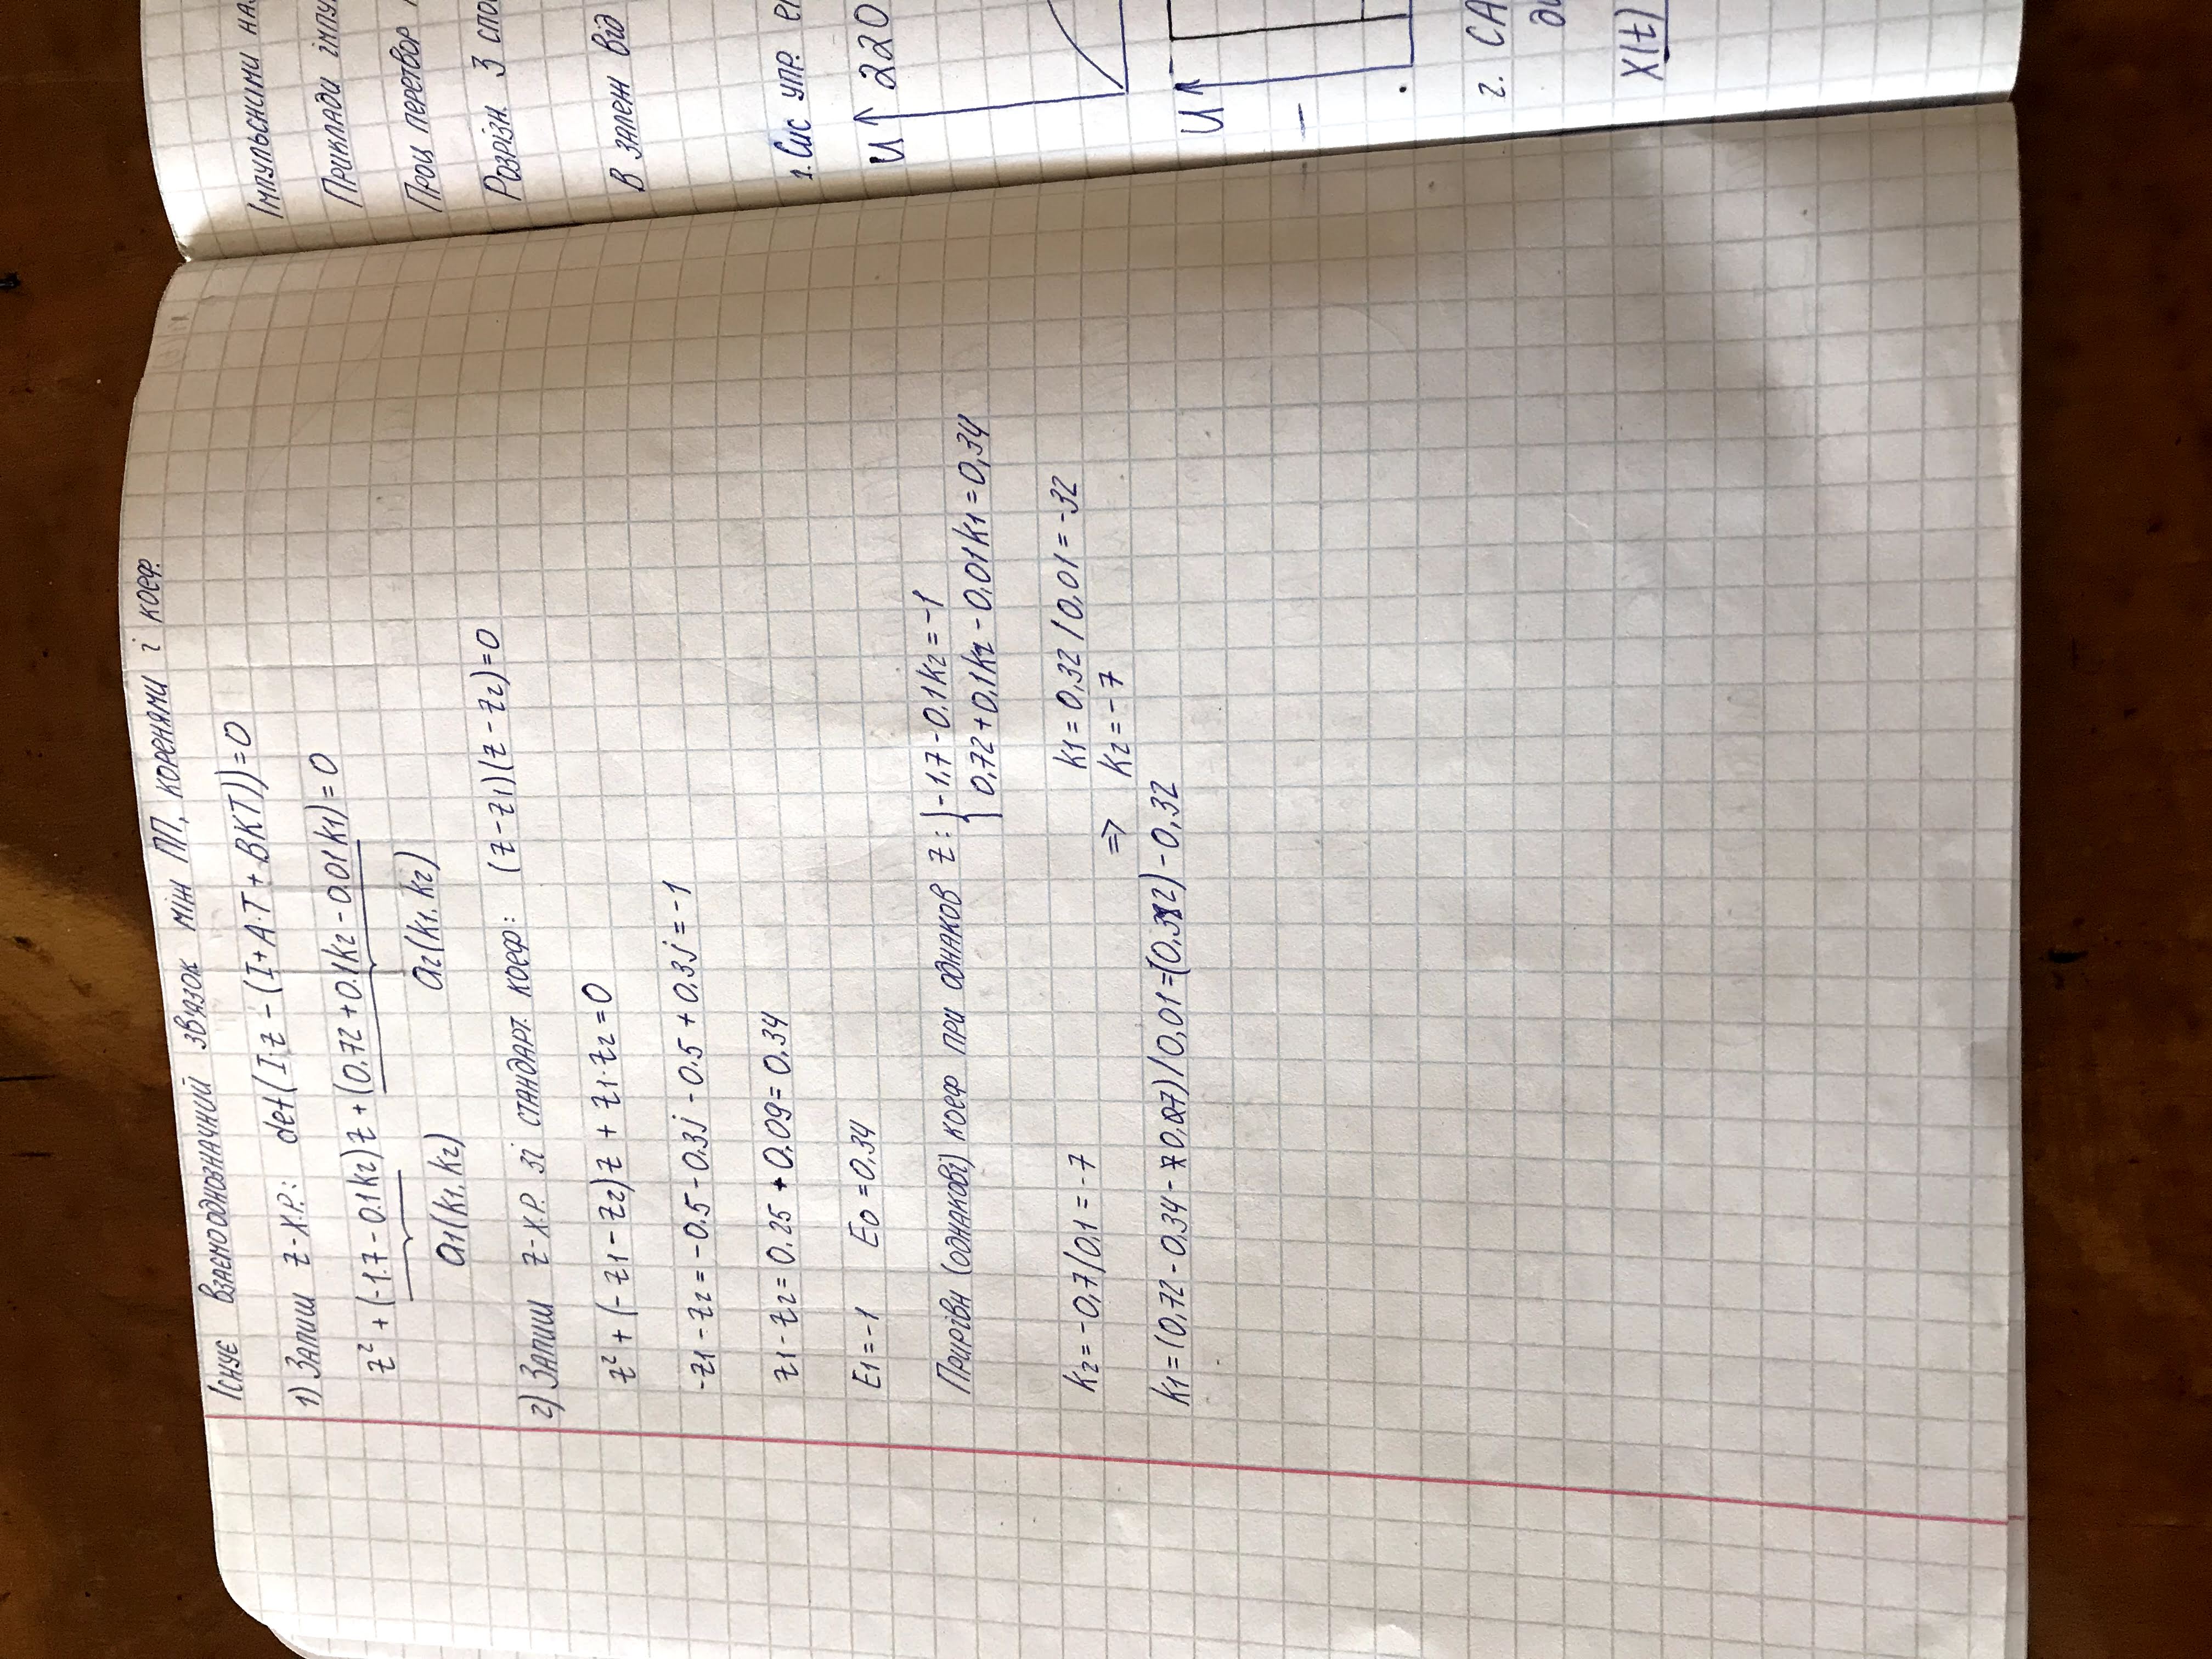 Існує взаємооднозначний зв'язок між ПП, коренями і коеф.
1) Запиш z-х.р.: det(I·z - (I+A·T + BKT))=0
z² + (-1.7 - 0.1k2)z + (0.72 + 0.1k2 - 0.01k1) = 0
a1(k1, k2) a2(k1, k2)
2) Запиш z-х.р. зі стандарт. коеф: (z-z1)(z-z2)=0
z² + (-z1 - z2)z + z1·z2 = 0
-z1 - z2 = -0.5 - 0.3j - 0.5 + 0.3j = -1
z1 - z2 = 0.25 + 0,09 = 0.34
E1 = -1 E0 = 0,34
Прирівн (однакові) коеф при однаков z: -1,7 - 0,1k2 = -1
0,72 + 0,1k2 - 0,01k1 = 0,34
k2 = -0,7/0,1 = -7
k1 = 0,32 / 0,01 = -32
=> k2 = -7
k1 = (0,72 - 0,34 - 0,7) / 0,01 = - 0,32
Імпульсними
Приклади
Проц перетвор
Розрізн. 3
В залеж від
1. Сис упр.
U 220
U
2. СА
X(t)